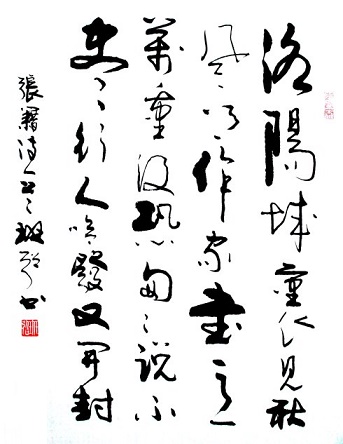 洛陽城裏見秋
風欲作家書意
萬重復恐匆匆說不
盡行人臨發又開封
張籍詩